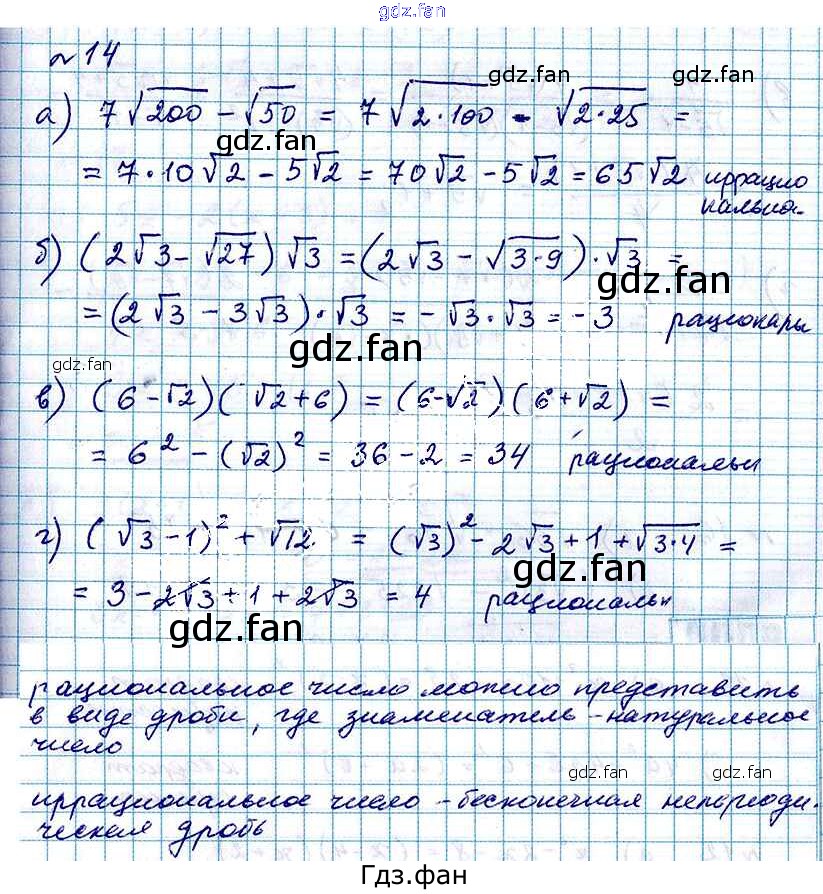 gdz.fan
№14
gdz.fan
а) 7√200 − √50 = 7√2·100 − √2·25 =
gdz.fan
gdz.fan
= 7·10√2 − 5√2 = 70√2 − 5√2 = 65√2 иррацио
нальна.
б) (2√3 − √27) √3 = (2√3 − √3·9)·√3 =
gdz.fan
= (2√3 − 3√3)·√3 = −√3·√3 = −3 рационары
gdz.fan
gdz.fan
в) (6−√2)(√2+6) = (6−√2)(6+√2) =
= 6² − (√2)² = 36 − 2 = 34 рациональн
г) (√3 −1)² + √12 = (√3)² − 2√3 + 1 + √3·4 =
gdz.fan
= 3 − 2√3 + 1 + 2√3 = 4 рациональн
gdz.fan
рациональное число можно представить
в виде дроби, где знаменатель - натуральное
число
gdz.fan
gdz.fan
иррациональное число - бесконечная непериоди-
ческая дробь
Гдз.фан